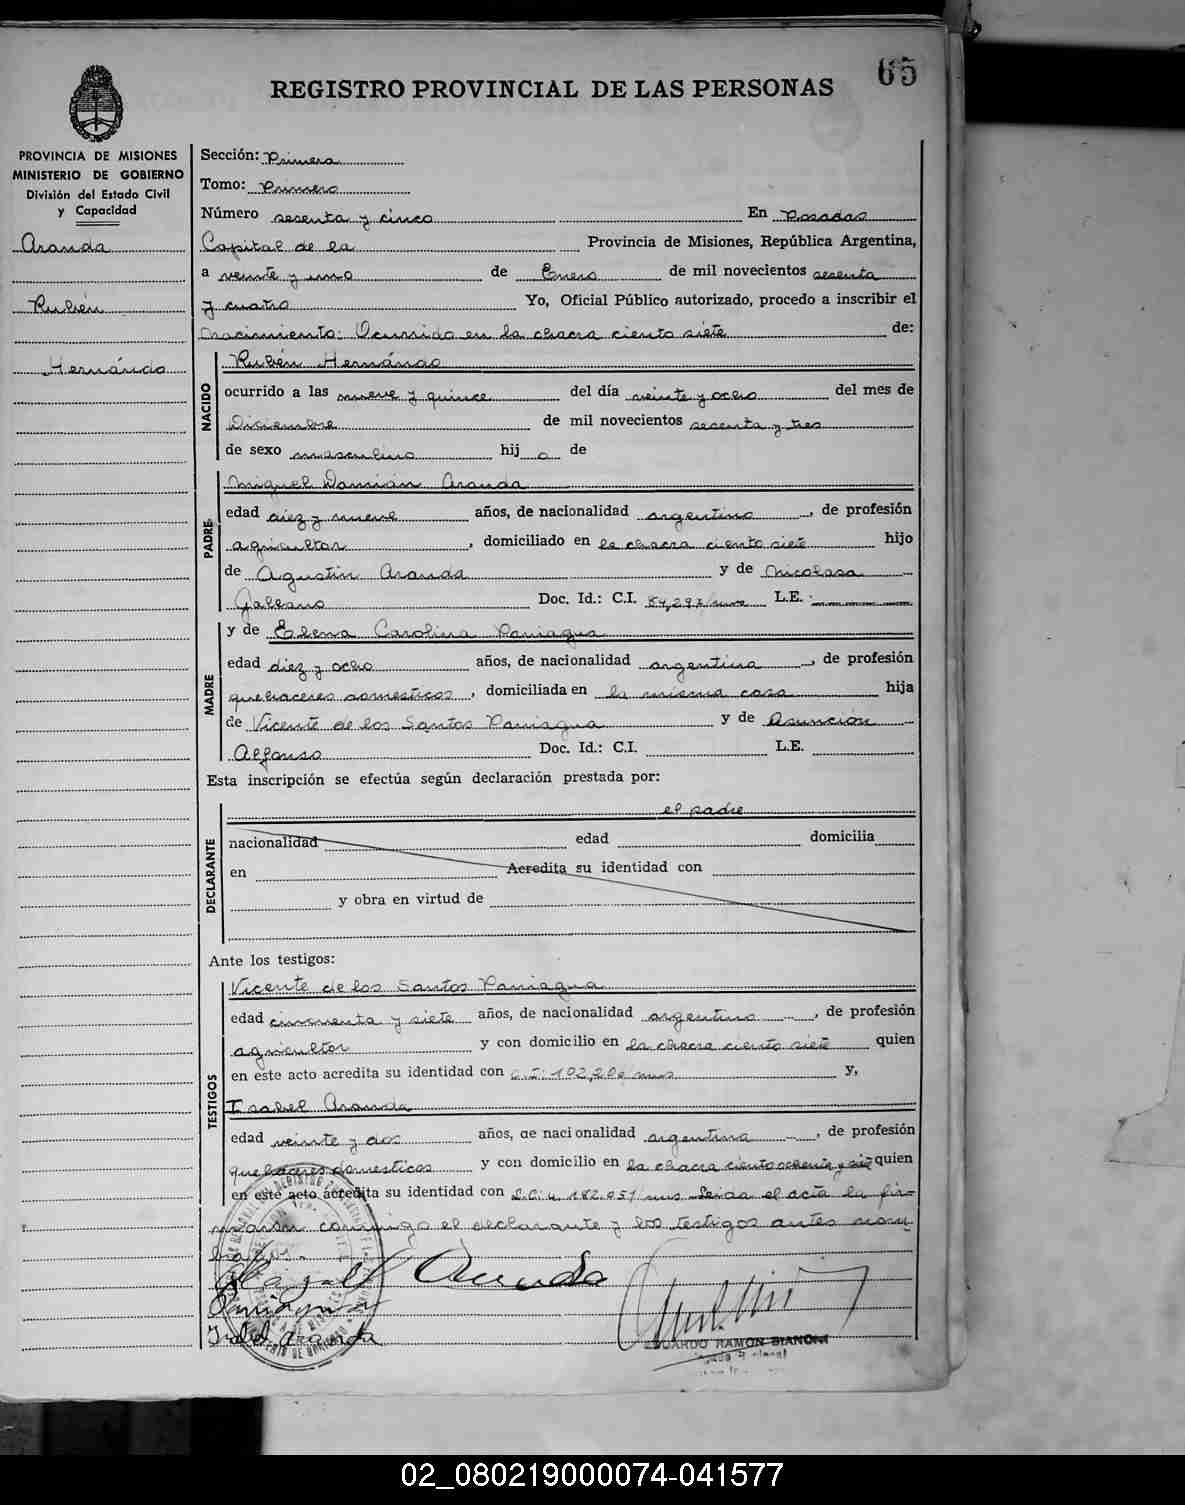 65
REGISTRO PROVINCIAL DE LAS PERSONAS
PROVINCIA DE MISIONES
MINISTERIO DE GOBIERNO
División del Estado Civil
y Capacidad
Aranda
Rubén
Hernándo
Sección: Primera
Tomo: Primero
Número sesenta y cinco En Posadas
Capital de la Provincia de Misiones, República Argentina,
a veinte y uno de Enero de mil novecientos sesenta
y cuatro Yo, Oficial Público autorizado, procedo a inscribir el
nacimiento: Ocurrido en la chacra ciento siete de:
NACIDO
Rubén Hernándo
ocurrido a las nueve y quince del día veinte y ocho del mes de
Diciembre de mil novecientos sesenta y tres
de sexo masculino hij o de
PADRE
Miguel Damián Aranda
edad diez y nueve años, de nacionalidad argentino, de profesión
agricultor, domiciliado en la chacra ciento siete hijo
de Agustín Aranda y de Nicolasa
Galeano Doc. Id.: C.I. L.E.
MADRE
y de Elena Carolina Paniagua
edad diez y ocho años, de nacionalidad argentina, de profesión
quehaceres domesticos, domiciliada en la misma casa hija
de Vicente de los Santos Paniagua y de Asunción
Alfonso Doc. Id.: C.I. L.E.
Esta inscripción se efectúa según declaración prestada por:
DECLARANTE
el padre
nacionalidad edad domicilia
en Acredita su identidad con
y obra en virtud de
Ante los testigos:
TESTIGOS
Vicente de los Santos Paniagua
edad cincuenta y siete años, de nacionalidad argentino, de profesión
agricultor y con domicilio en la chacra ciento siete quien
en este acto acredita su identidad con C.I. y,
Isabel Aranda
edad veinte y dos años, de nacionalidad argentina, de profesión
quehaceres domesticos y con domicilio en la chacra ciento ochenta y quien
en este acto acredita su identidad con Leida el acta la fir-
maron conmigo el declarante y los testigos antes nom-
brados.
Aranda
Paniagua
Isabel Aranda
EDUARDO RAMON BIANCHI
02_080219000074-041577